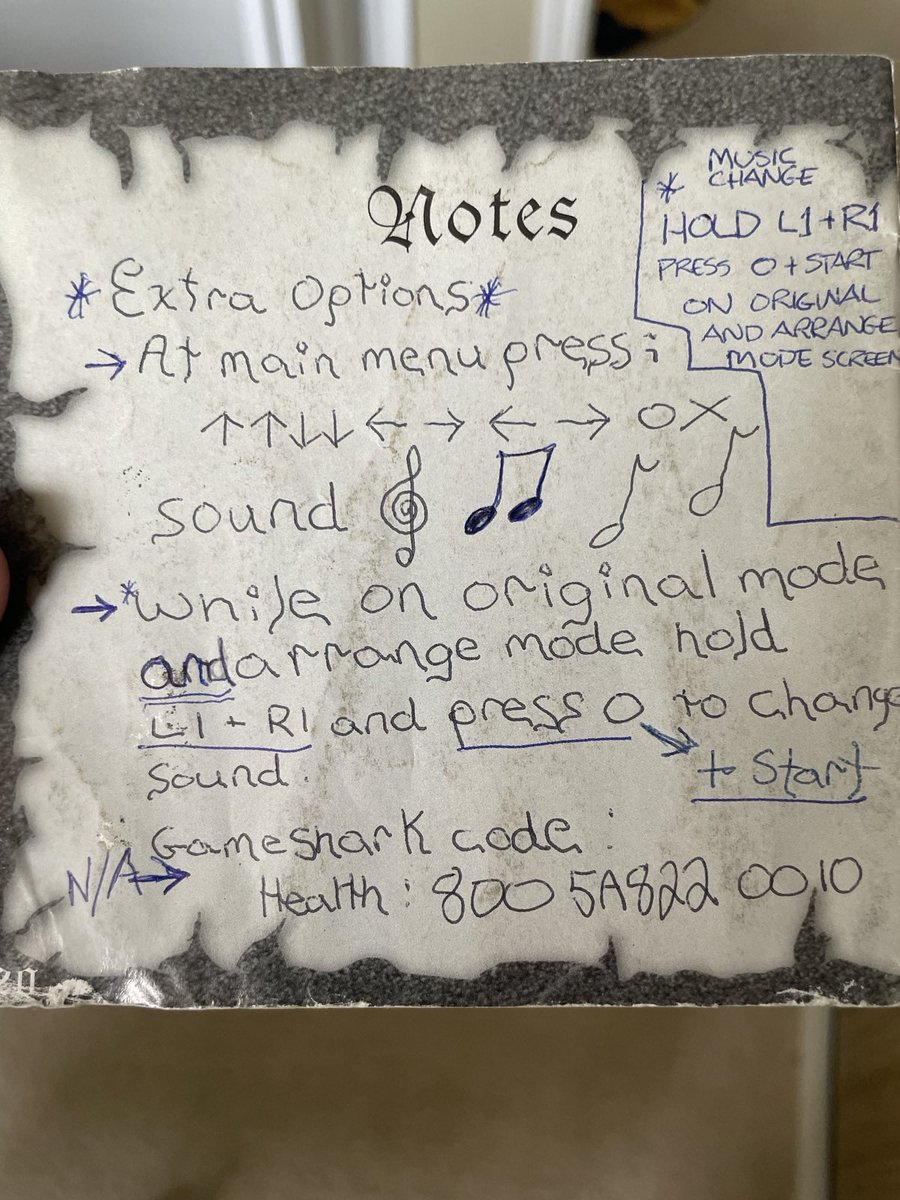 Notes
*Extra Options*
→ At main menu press:
↑↑↓↓←→ ←→ O X
sound
→ *While on original mode
and arrange mode hold
L1 + R1 and press O to change
+ Start
sound.
Gameshark code:
N/A→
Health: 8005A822 0010
* MUSIC
CHANGE
HOLD L1+R1
PRESS O + START
ON ORIGINAL
AND ARRANGE
MODE SCREEN